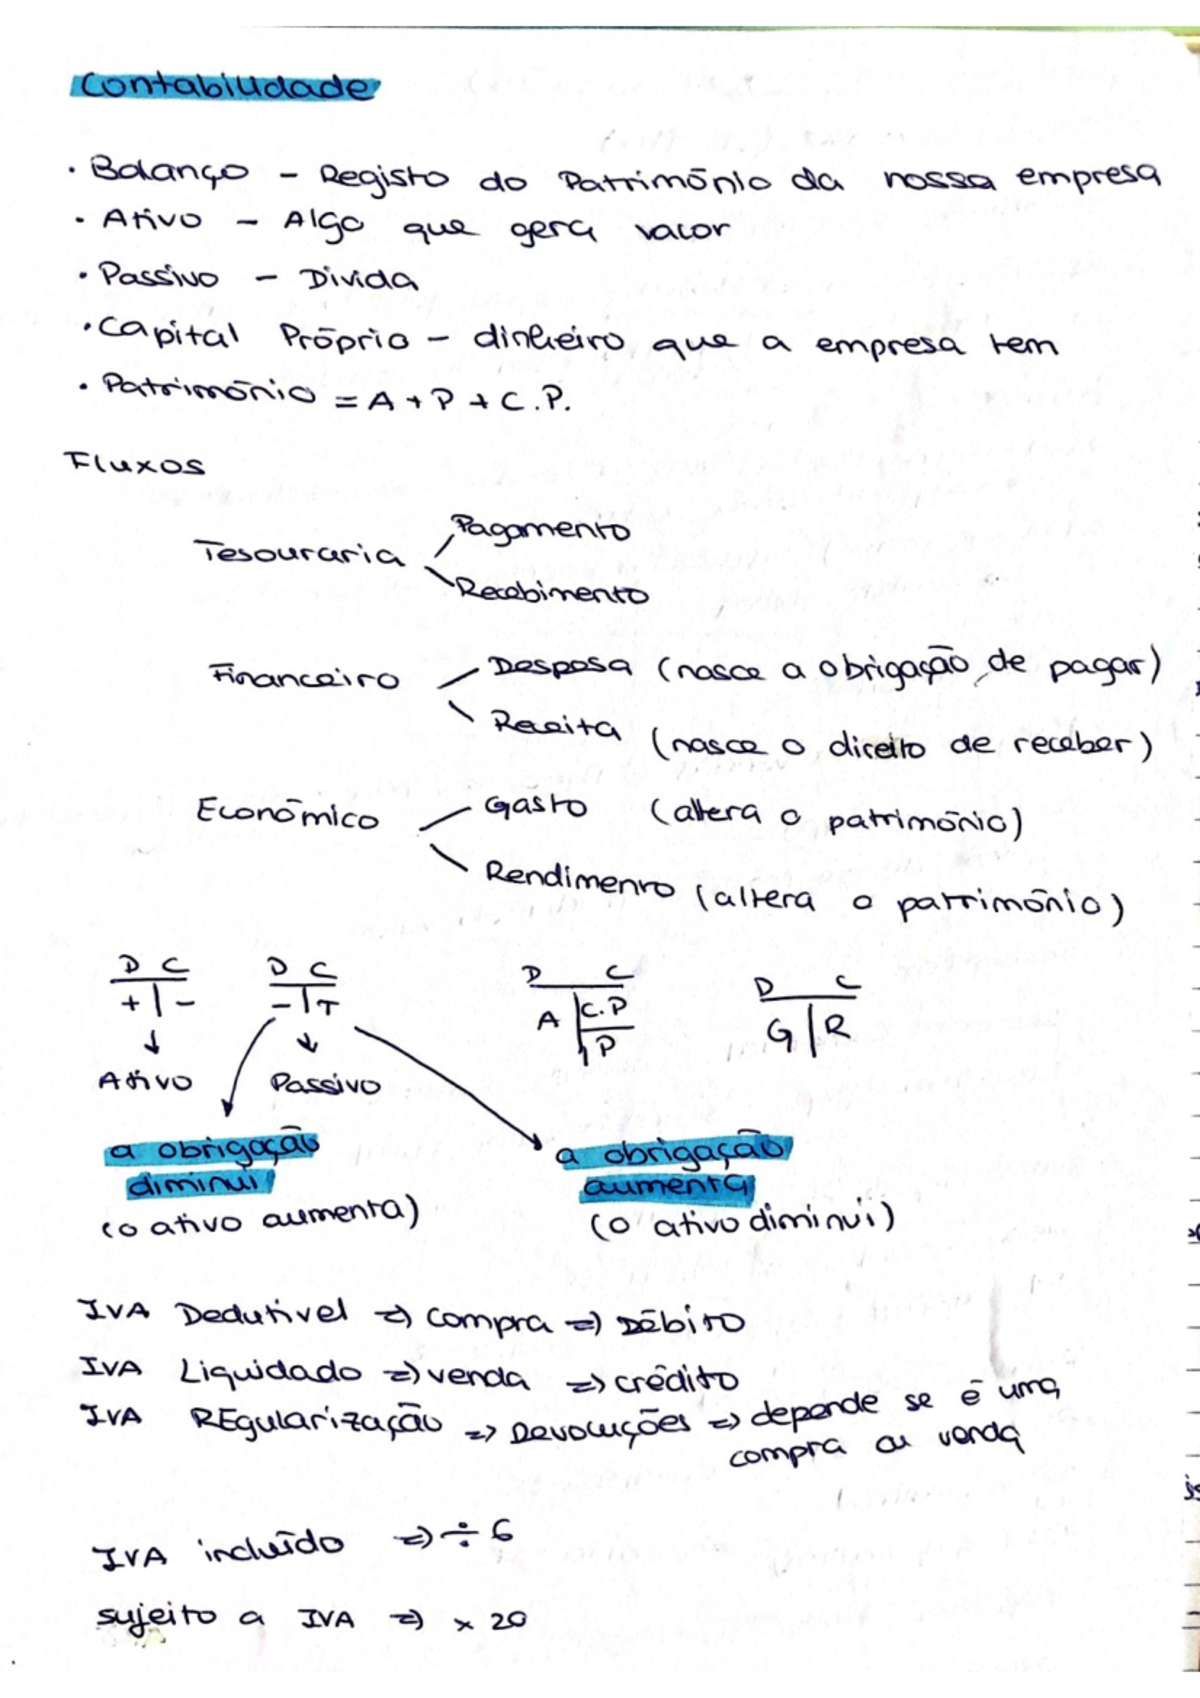 Contabilidade
· Balanço - Registo do Património da nossa empresa
· Ativo - Algo que gera valor
· Passivo - Divida
· Capital Próprio - dinheiro que a empresa tem
· Património = A + P + C.P.
Fluxos
Pagamento
Tesouraria
Recebimento
Financeiro
Despesa (nasce a obrigação de pagar)
Receita (nasce o direito de receber)
Económico
Gasto (altera o património)
Rendimento (altera o património)
D C D C D C D C
+ | - - | + A C.P G | R
P
Ativo Passivo
a obrigação diminui
(o ativo aumenta)
a obrigação aumenta
(o ativo diminui)
IVA Dedutivel => compra => Débito
IVA Liquidado => venda => crédito
IVA REgularização => Devoluções => depende se é uma
compra ou venda
IVA incluído => ÷ 6
sujeito a IVA => × 20